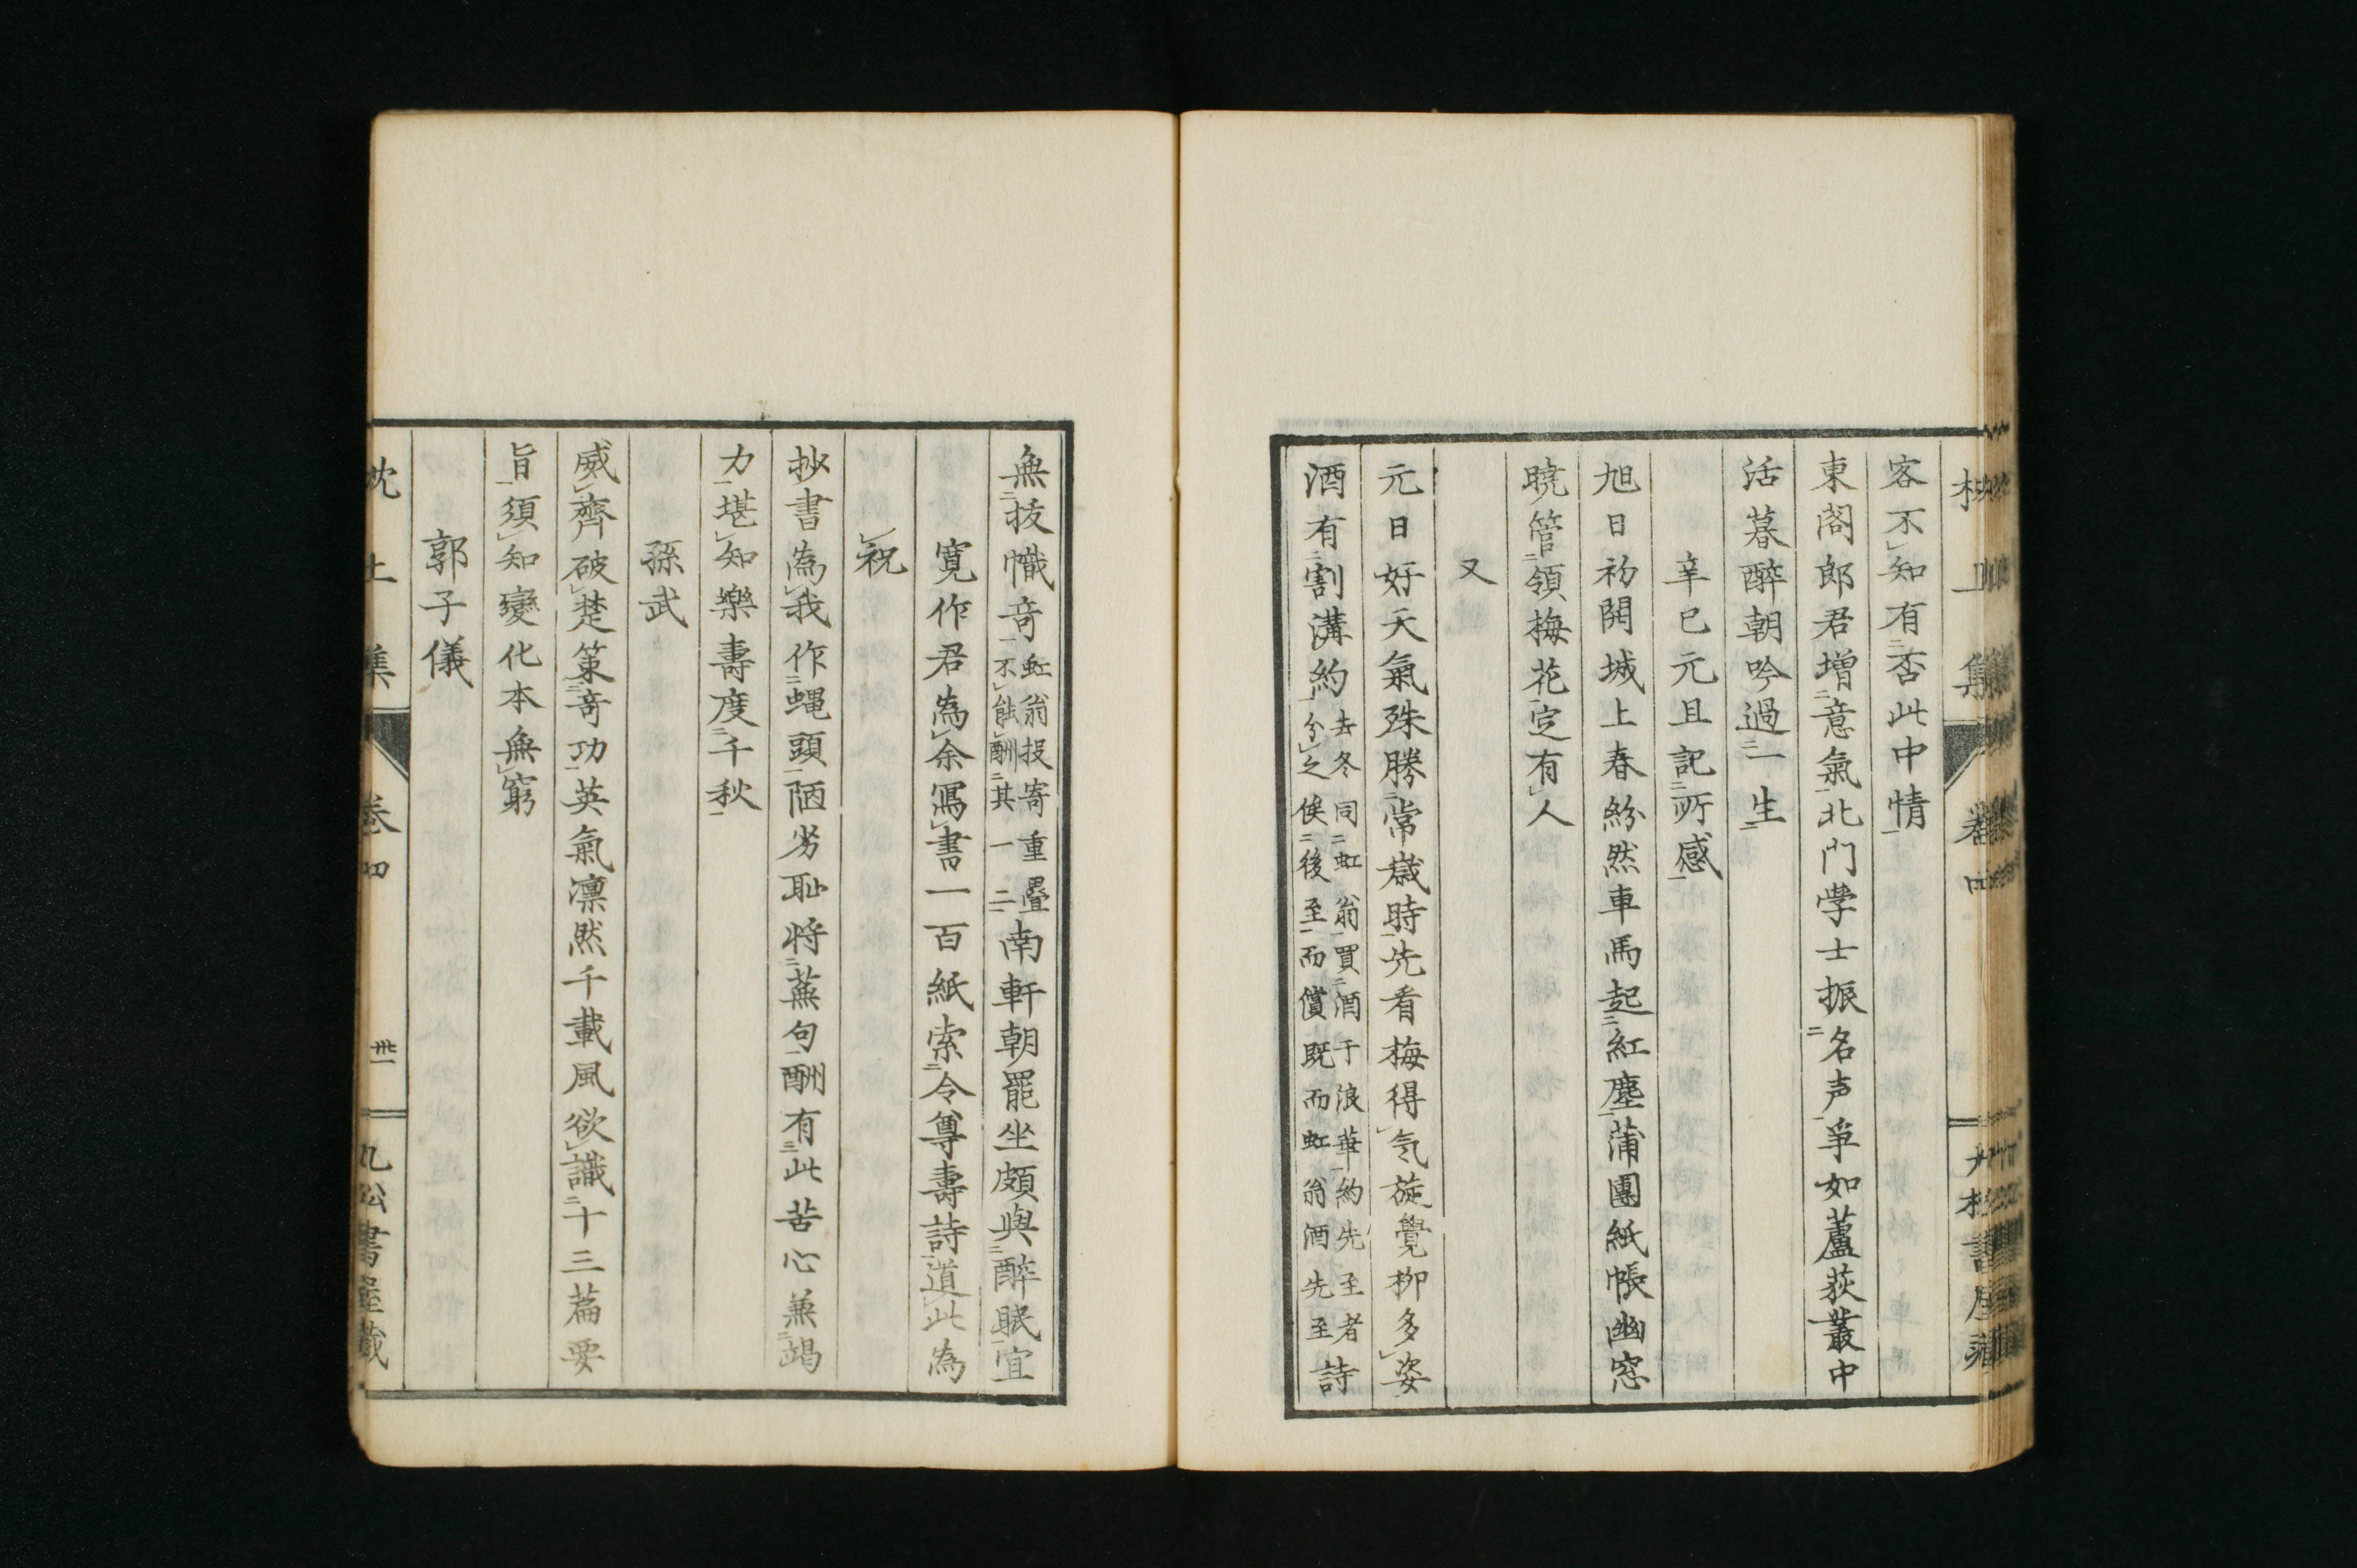 客不知有否此中情
東閣郎君増意氣北門学士振名声争如蘆荻叢中
活暮酔朝吟過一生
辛巳元旦記所感
旭日初開城上春紛然車馬起紅塵蒲團紙帳幽窓
暁管領梅花定有人
又
元日好天氣殊勝常歳時先看梅得気旋覺柳多姿
酒有割溝約去冬同虹翁買酒于浪華約先至者
分之俟後至而償既而虹翁酒先至詩
無抜幟奇虹翁投寄重疊
不能酬其一二南軒朝罷坐頗與酔眠宜
寛作君為余寫書一百紙索令尊壽詩道此為
祝
抄書為我作蝿頭陋劣耻将蕪句酬有此苦心兼竭
力堪知樂壽度千秋
孫武
威齊破楚策奇功英氣凛然千載風欲識十三篇要
旨須知變化本無窮
郭子儀
枕上集 巻四 卅一 九松書屋蔵